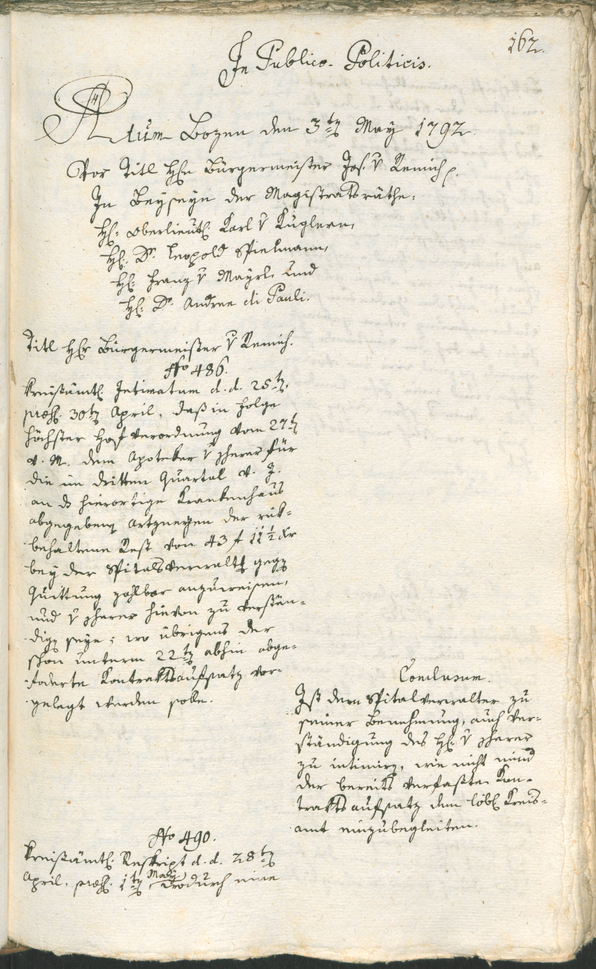 162.
In Publico-Politicis.
Actum Bozen den 3ten May 1792
Vor Titl Hhn Bürgermeister Jos. v Remich p.
In Beyseyn der Magistratsräthe,
Hh. Oberlieut. Karl v Kuglern,
Hh. Dr. Leopold Spielmann,
Hh. Franz v Mayrl, und
Hh. Dr. Andree di Pauli.
Titl Hhr Bürgermeister v Remich.
No 486.
Kreisämtl. Intimatum d.d. 25ten,
præs. 30ten April, daß in Folge
höchster Hofverordnung vom 27ten
v. M. dem Apoteker v Pherer für
die im dritten Quartal v. J.
an ds hierortige Krankenhaus
abgegebenen Artzneyen der rük-
behaltene Rest von 43 f 11½ xr
bey der Spitalsverwalt gegen
Quittung zahlbar anzuweisen,
und v Pherer hievon zu verstän-
digen seye; wo übrigens der
schon unterm 22ten abhin abge-
foderte Kontraktsaufsatz vor-
gelegt werden solle.
Conclusum.
Ist dem Spitalverwalter zu
seiner Benehmung, auch Ver-
ständigung des Hh. v Pherer
zu intimiren, wie nicht mind
der bereits verfaßte Kon-
traktsaufsatz dem löbl. Kreis-
amt einzubegleiten.
No 490.
Kreisämtl. Reskript d.d. 28ten
April, præs. 1ten May, wodurch eine